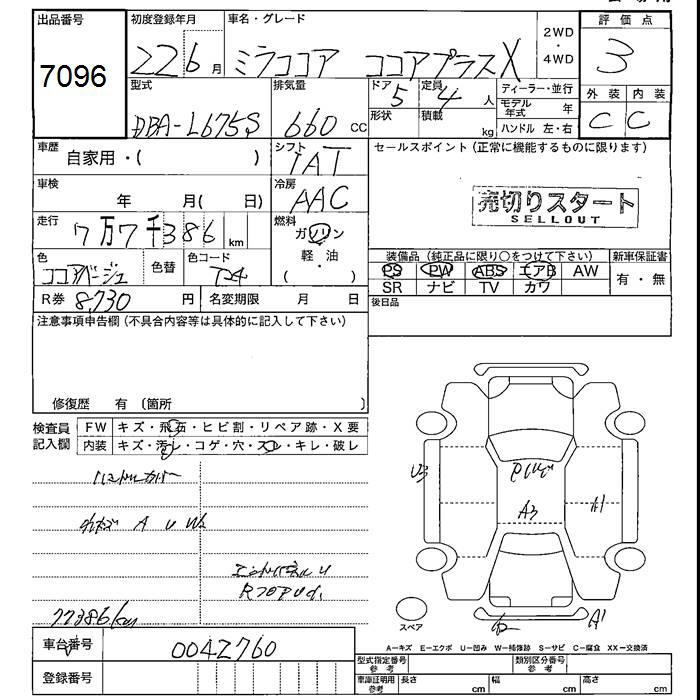 出品番号
7096
初度登録年月
22 6 月
車名・グレード
ミラココア ココアプラスX
2WD
・
4WD
評 価 点
3
外 装 内 装
C C
型式
DBA-L675S
排気量
660 CC
ドア
5
定員
4 人
形状
積載
kg
ディーラー・並行
モデル年式 年
ハンドル 左・右
車歴
自家用・( )
シフト
IAT
セールスポイント(正常に機能するものに限ります)
売切りスタート
SELLOUT
車検
年 月( 日)
冷房
AAC
走行
7万7千386 km
燃料
ガソリン
・
軽・油
色
ココアベージュ
色替
色コード
T24
装備品(純正品に限り○をつけて下さい)
PS PW ABS エアB AW
SR ナビ TV カワ
新車保証書
有・無
R券 8,730 円
名変期限 月 日
後日品
注意事項申告欄(不具合内容等は具体的に記入して下さい)
修復歴 有 〔箇所 〕
検査員記入欄
FW キズ・飛石・ヒビ割・リペア跡・X要
内装 キズ・汚レ・コゲ・穴・スレ・キレ・破レ
ハンドルカバー
A U W2
77386km
U3
A3
A1
A1
スペア
A-キズ E-エクボ U-凹み W-補修跡 S-サビ C-腐食 XX-交換済
車台番号
0042760
登録番号
型式指定番号
参考
類別区分番号
参考
車庫証明用
参考
長さ cm
幅 cm
高さ cm